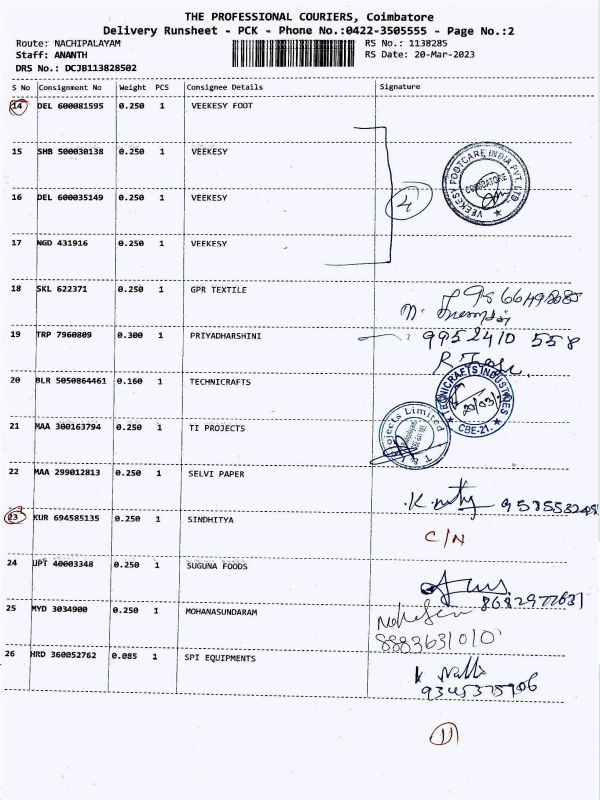 THE PROFESSIONAL COURIERS, Coimbatore
Delivery Runsheet - PCK - Phone No.:0422-3505555 - Page No.:2
Route: NACHIPALAYAM RS No.: 1138285
Staff: ANANTH RS Date: 20-Mar-2023
DRS No.: DCJB113828502
S No Consignment No Weight PCS Consignee Details Signature
14 DEL 600081595 0.250 1 VEEKESY FOOT
15 SMB 500030138 0.250 1 VEEKESY
VEEKESY FOOTCARE INDIA PVT. LTD.
COIMBATORE
16 DEL 600035149 0.250 1 VEEKESY
4
17 NGD 431916 0.250 1 VEEKESY
18 SKL 622371 0.250 1 GPR TEXTILE
19 TRP 7960809 0.300 1 PRIYADHARSHINI 9952410 558
20 BLR 5050864461 0.160 1 TECHNICRAFTS
TECHNICRAFTS INDUSTRIES
20/03/
CBE-21.
21 MAA 300163794 0.250 1 TI PROJECTS
Projects Limited
22 MAA 299012813 0.250 1 SELVI PAPER
23 KUR 694585135 0.250 1 SINDHITYA
C/N
24 UPT 40003348 0.250 1 SUGUNA FOODS
8682977631
25 MYD 3034900 0.250 1 MOHANASUNDARAM
8883631010
26 HRD 360052762 0.085 1 SPI EQUIPMENTS
9345375906
11